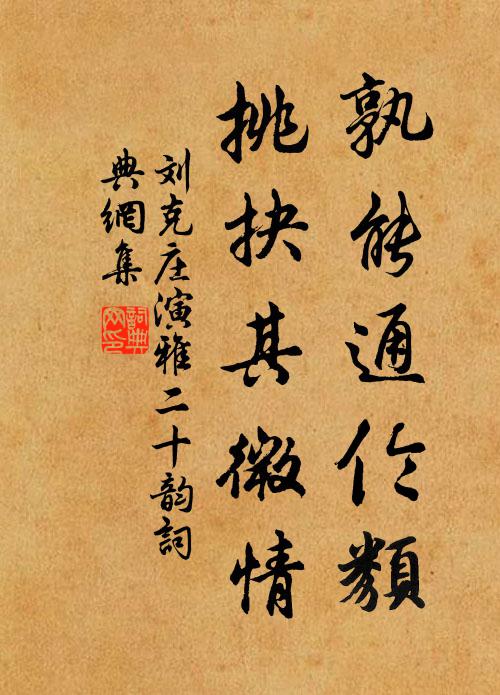 孰能通伦類
挑抉其微情
刘克庄演雅二十韵詞
典網集
詞典
网印